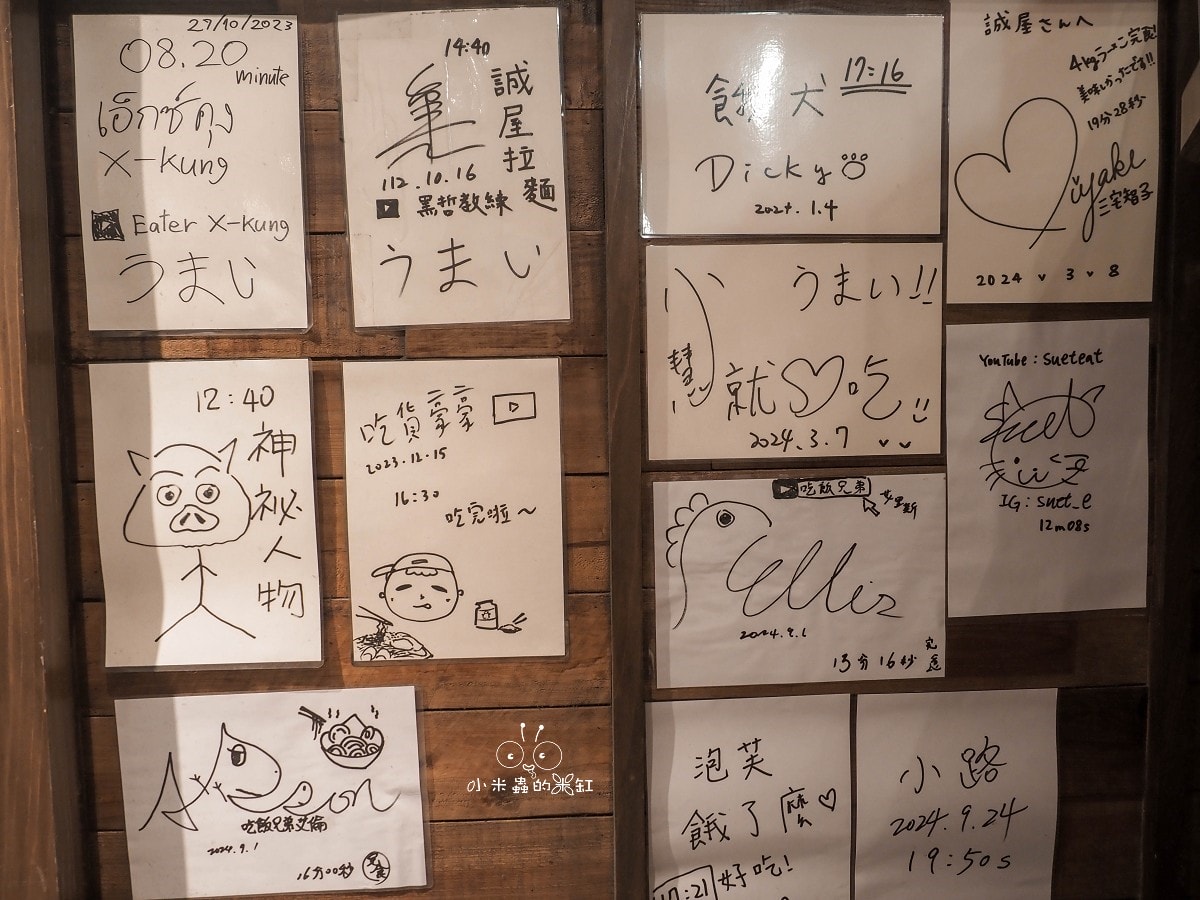 27/10/2023
08.20
minute
เอ็กซ์คุง
X-Kung
Eater X-Kung
うまい
14:40
誠屋拉麵
112.10.16
黑哲教練
うまい
餓犬 17:16
Dicky
2024.1.4
誠屋さんへ
4kgラーメン完食!
美味しかったです!!
19分28秒
三宅智子
2024 v 3 v 8
うまい!!
小慧
就♡吃
2024.3.7
YouTube : sueteat
IG : suet_e
12m08s
12:40
神祕人物
吃貨豪豪
2023.12.15
16:30
吃完啦~
吃飯兄弟 艾里斯
Ellis
2024.9.1
13分16秒
完食
吃飯兄弟艾倫
2024.9.1
16分00秒
完食
小米蟲的米缸
泡芙
餓了麼♡
17:21 好吃!
小路
2024.9.24
19:50s